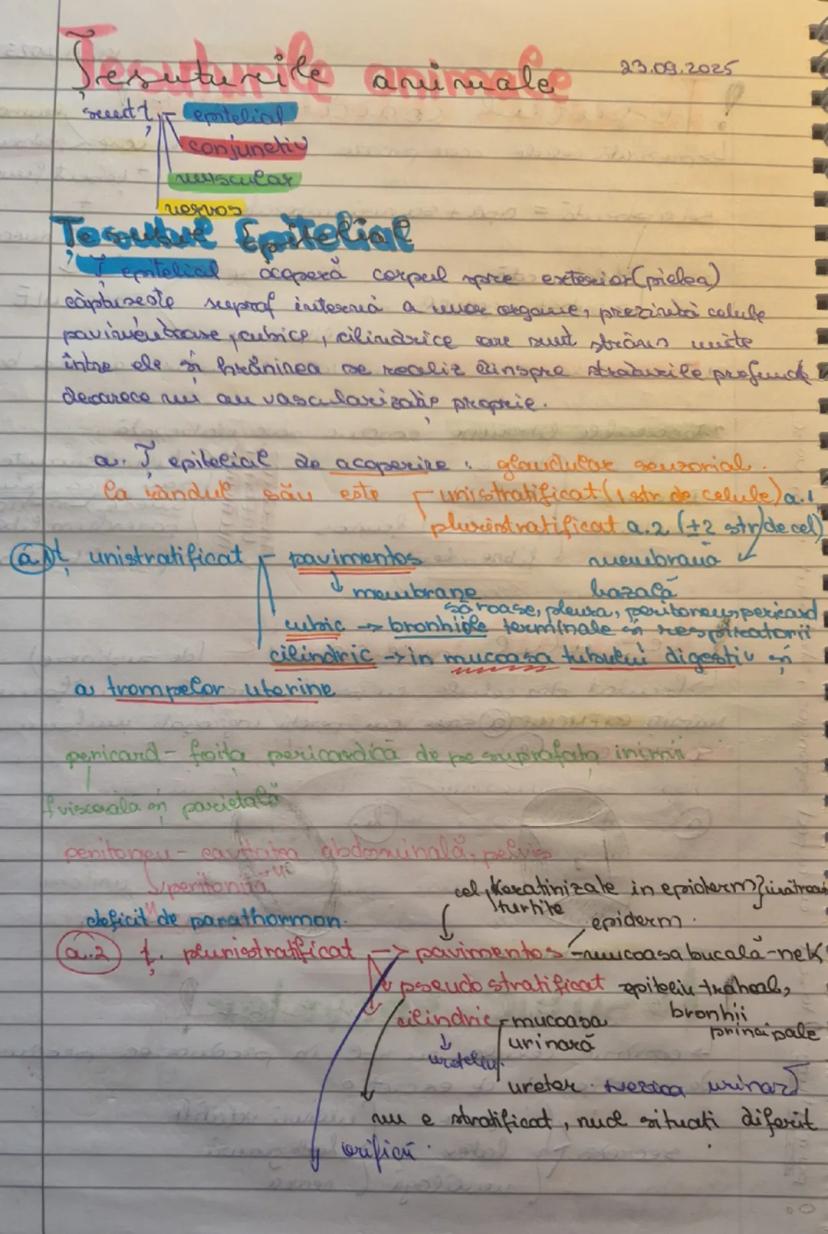 Țesuturile animale 23.09.2025
sunt ț epitelial
conjunctiv
muscular
nervos
Țesutul Epitelial
Ț epitelial acoperă corpul spre exterior (pielea)
căptușește supraf internă a unor organe, prezintă celule
pavimentoase, cubice, cilindrice care sunt strâns unite
între ele și hrănirea se realiz dinspre straturile profunde
deoarece nu au vascularizație proprie.
a. Ț epitelial de acoperire, glandular senzorial.
la rândul său este unistratificat (1 str de celule) a.1
pluristratificat a.2 (±2 str de cel)
a.1 ț unistratificat pavimentos membrană
↓ membrane bazală
săroase, pleura, peritoneu, pericard
cubic → bronhiole terminale și respiratorii
cilindric → in mucoasa tubului digestiv și
a trompelor uterine
pericard - foița pericardică de pe suprafața inimii
viscerala și parietală
peritoneu - cavitatea abdominală, pelvis
peritonită
deficit de parathormon.
cel, Keratinizate in epiderm
turtite
epiderm.
a.2 ț. pluristratificat → pavimentos - mucoasa bucală - neK
pseudostratificat epiteliu traheal,
bronhii
principale
cilindric - mucoasa
urinară
↓ uroteliu
ureter vezica urinar
nu e stratificat, nucl situati diferit
orificii.